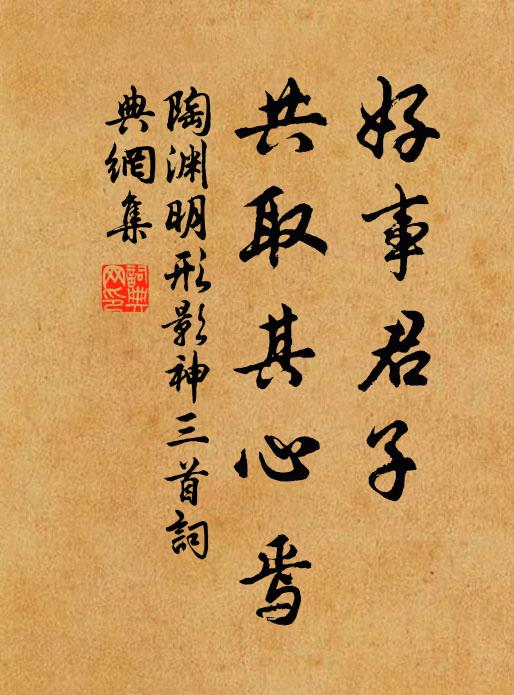 好事君子
共取其心焉
陶渊明形影神三首詞
典網集
詞典网印